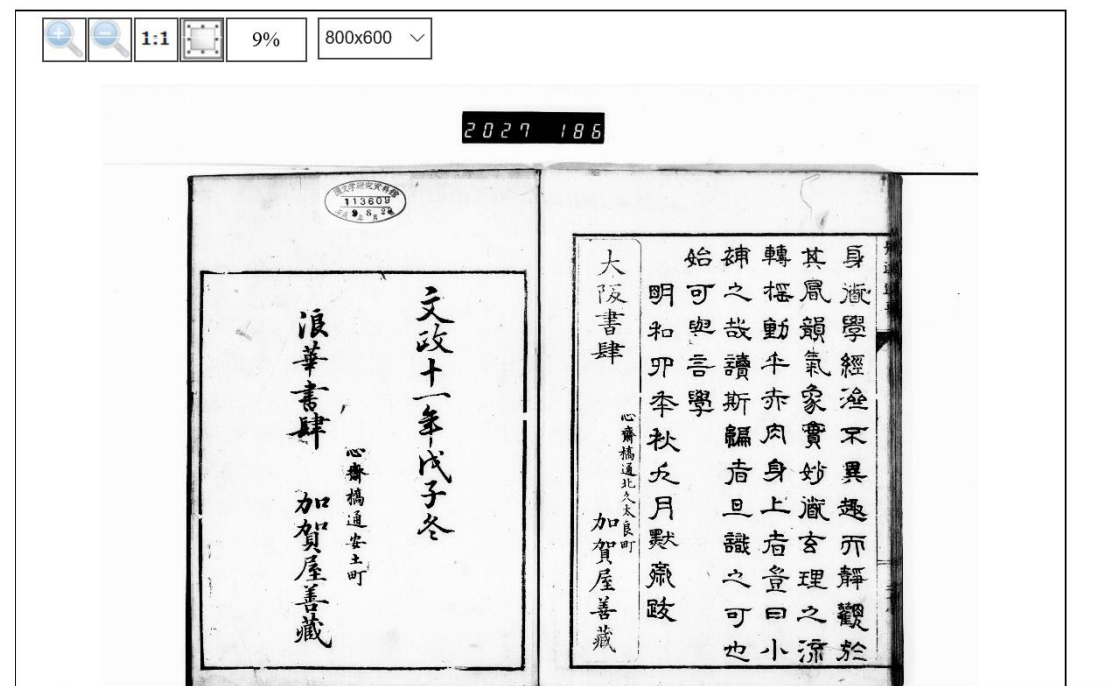 1:1
9%
800x600
2027 186
身衜學經塗不異趣而靜觀於
其風韻氣象實妙衜玄理之流
轉搖動乎赤肉身上者豈曰小
補之哉讀斯編者且識之可也
始可與言學
明和卯年秋九月默齋跋
大阪書肆
心齋橋通北久太良町
加賀屋善藏
國文学研究資料館
113609
文政十一年戊子冬
心齋橋通安土町
浪華書肆 加賀屋善藏